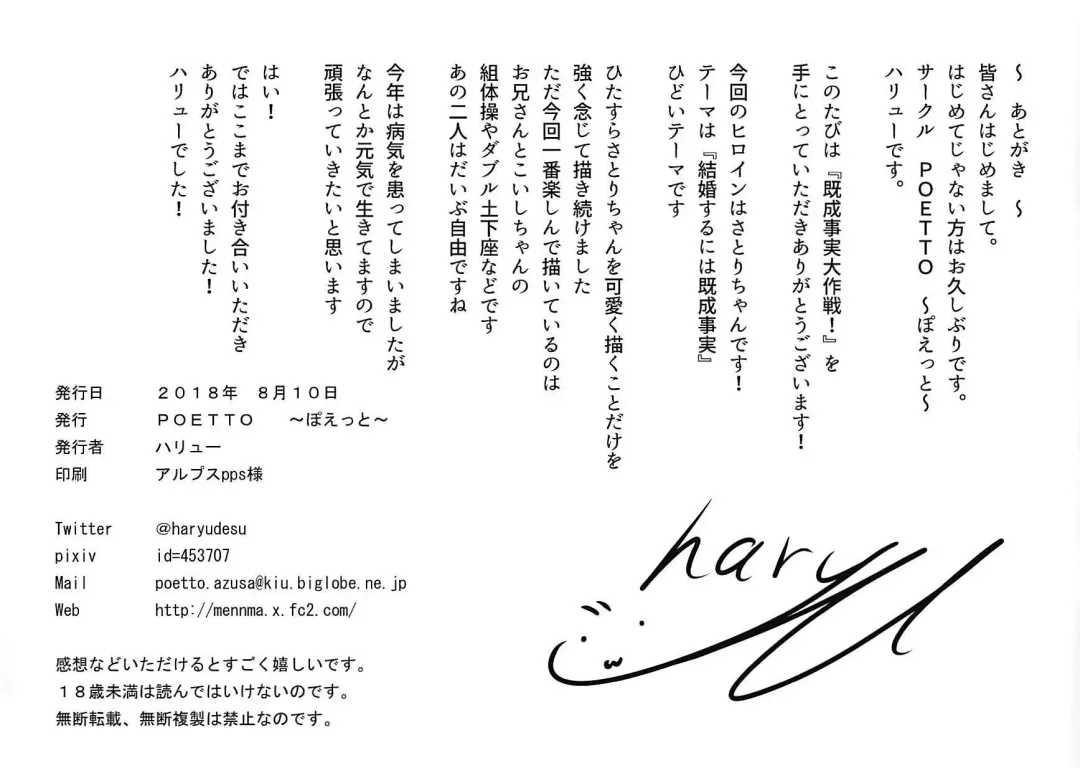 ～ あとがき ～
皆さんはじめまして。
はじめてじゃない方はお久しぶりです。
サークル ＰＯＥＴＴＯ ～ぽえっと～
ハリューです。
このたびは『既成事実大作戦！』を
手にとっていただきありがとうございます！
今回のヒロインはさとりちゃんです！
テーマは『結婚するには既成事実』
ひどいテーマです
ひたすらさとりちゃんを可愛く描くことだけを
強く念じて描き続けました
ただ今回一番楽しんで描いているのは
お兄さんとこいしちゃんの
組体操やダブル土下座などです
あの二人はだいぶ自由ですね
今年は病気を患ってしまいましたが
なんとか元気で生きてますので
頑張っていきたいと思います
はい！
ではここまでお付き合いいただき
ありがとうございました！
ハリューでした！
発行日 ２０１８年 ８月１０日
発行 ＰＯＥＴＴＯ ～ぽえっと～
発行者 ハリュー
印刷 アルプスpps様
Twitter @haryudesu
pixiv id=453707
Mail poetto.azusa@kiu.biglobe.ne.jp
Web http://mennma.x.fc2.com/
感想などいただけるとすごく嬉しいです。
１８歳未満は読んではいけないのです。
無断転載、無断複製は禁止なのです。
haryu